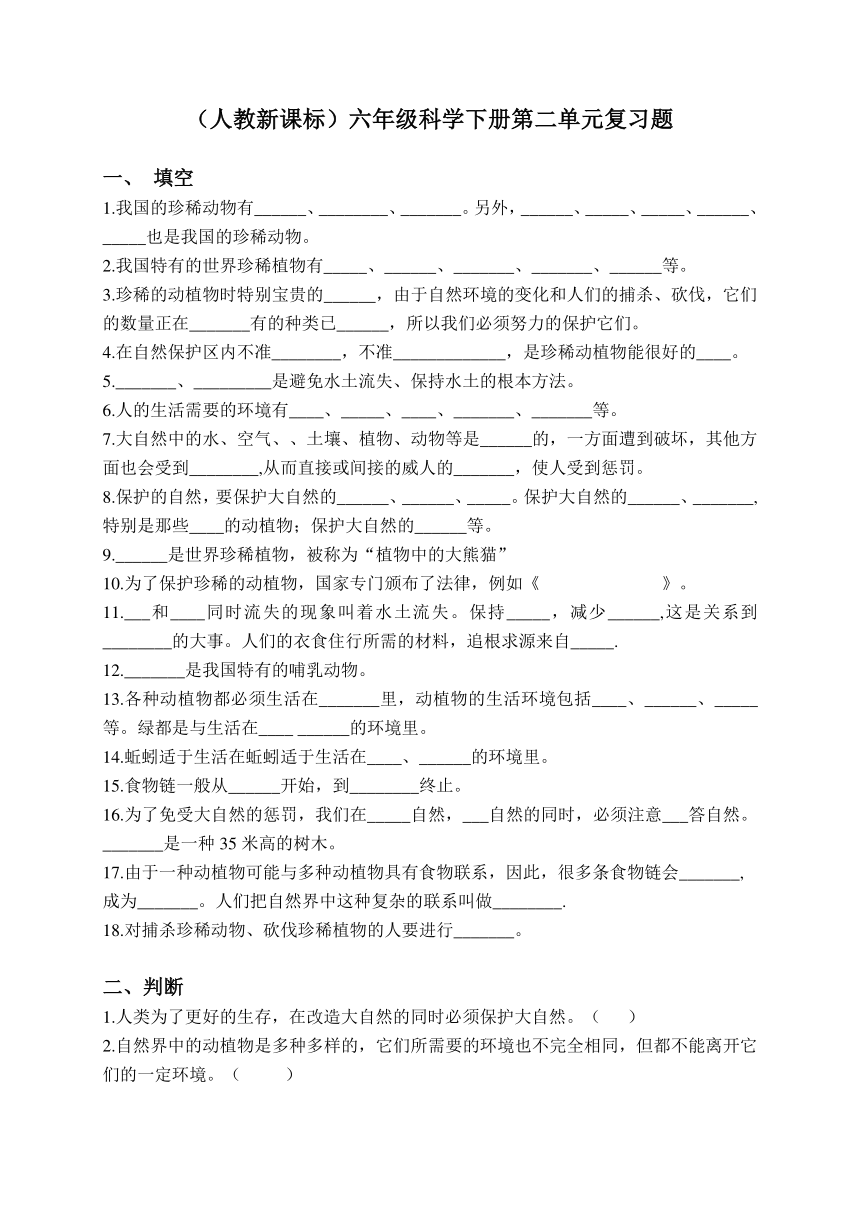 （人教新课标）六年级科学下册第二单元复习题
一、 填空
1.我国的珍稀动物有______、________、_______。另外，______、_____、_____、______、
_____也是我国的珍稀动物。
2.我国特有的世界珍稀植物有_____、______、_______、_______、______等。
3.珍稀的动植物时特别宝贵的______，由于自然环境的变化和人们的捕杀、砍伐，它们
的数量正在_______有的种类已______，所以我们必须努力的保护它们。
4.在自然保护区内不准________，不准_____________，是珍稀动植物能很好的____。
5._______、_________是避免水土流失、保持水土的根本方法。
6.人的生活需要的环境有____、_____、____、_______、_______等。
7.大自然中的水、空气、、土壤、植物、动物等是______的，一方面遭到破坏，其他方
面也会受到________,从而直接或间接的威人的_______，使人受到惩罚。
8.保护的自然，要保护大自然的______、______、_____。保护大自然的______、_______,
特别是那些____的动植物；保护大自然的______等。
9.______是世界珍稀植物，被称为“植物中的大熊猫”
10.为了保护珍稀的动植物，国家专门颁布了法律，例如《 》。
11.___和____同时流失的现象叫着水土流失。保持_____，减少______,这是关系到
________的大事。人们的衣食住行所需的材料，追根求源来自_____.
12._______是我国特有的哺乳动物。
13.各种动植物都必须生活在_______里，动植物的生活环境包括____、______、_____
等。绿都是与生活在____ ______的环境里。
14.蚯蚓适于生活在蚯蚓适于生活在____、______的环境里。
15.食物链一般从______开始，到________终止。
16.为了免受大自然的惩罚，我们在_____自然，___自然的同时，必须注意___答自然。
_______是一种 35 米高的树木。
17.由于一种动植物可能与多种动植物具有食物联系，因此，很多条食物链会_______,
成为_______。人们把自然界中这种复杂的联系叫做________.
18.对捕杀珍稀动物、砍伐珍稀植物的人要进行_______。
二、判断
1.人类为了更好的生存，在改造大自然的同时必须保护大自然。（ ）
2.自然界中的动植物是多种多样的，它们所需要的环境也不完全相同，但都不能离开它
们的一定环境。（ ）